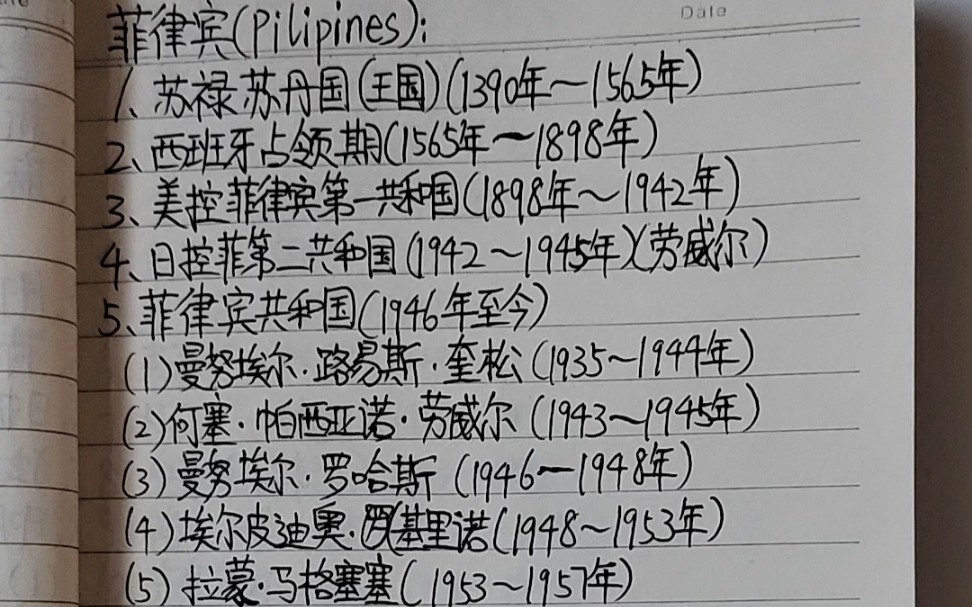 Date
菲律宾(Pilipines):
1、苏禄苏丹国(王国)(1390年～1565年)
2、西班牙占领期(1565年～1898年)
3、美控菲律宾第一共和国(1898年～1942年)
4、日控菲第二共和国(1942～1945年)(劳威尔)
5、菲律宾共和国(1946年至今)
(1)曼努埃尔·路易斯·奎松(1935～1944年)
(2)何塞·帕西亚诺·劳威尔(1943～1945年)
(3)曼努埃尔·罗哈斯(1946—1948年)
(4)埃尔皮迪奥·基里诺(1948～1953年)
(5)拉蒙·马格塞塞(1953～1957年)